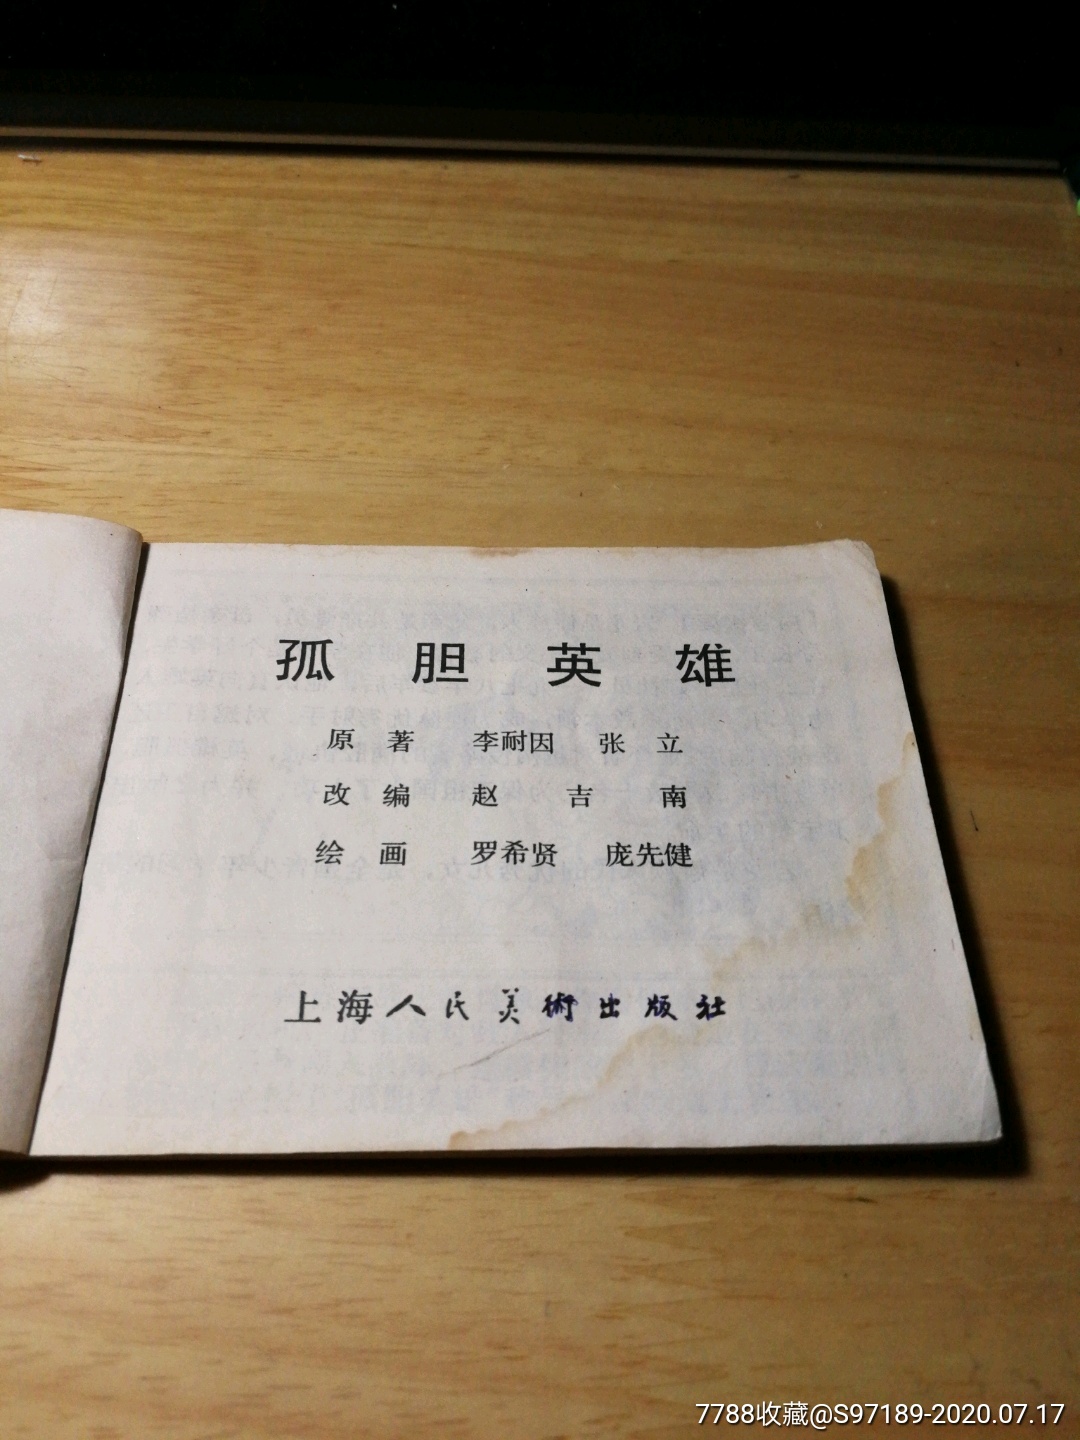 孤胆英雄
原著 李耐因 张立
改编 赵吉南
绘画 罗希贤 庞先健
上海人民美術出版社
7788收藏@S97189-2020.07.17